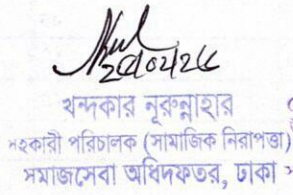 খন্দকার নূরুন্নাহার
সহকারী পরিচালক (সামাজিক নিরাপত্তা)
সমাজসেবা অধিদফতর, ঢাকা